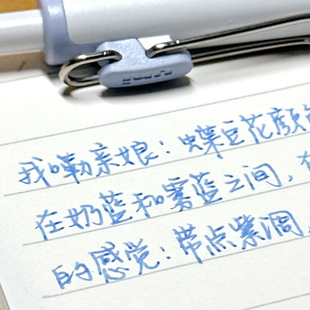 我嘞亲娘：蝶豆花颜
在奶蓝和雾蓝之间，
的感觉：带点紫调，